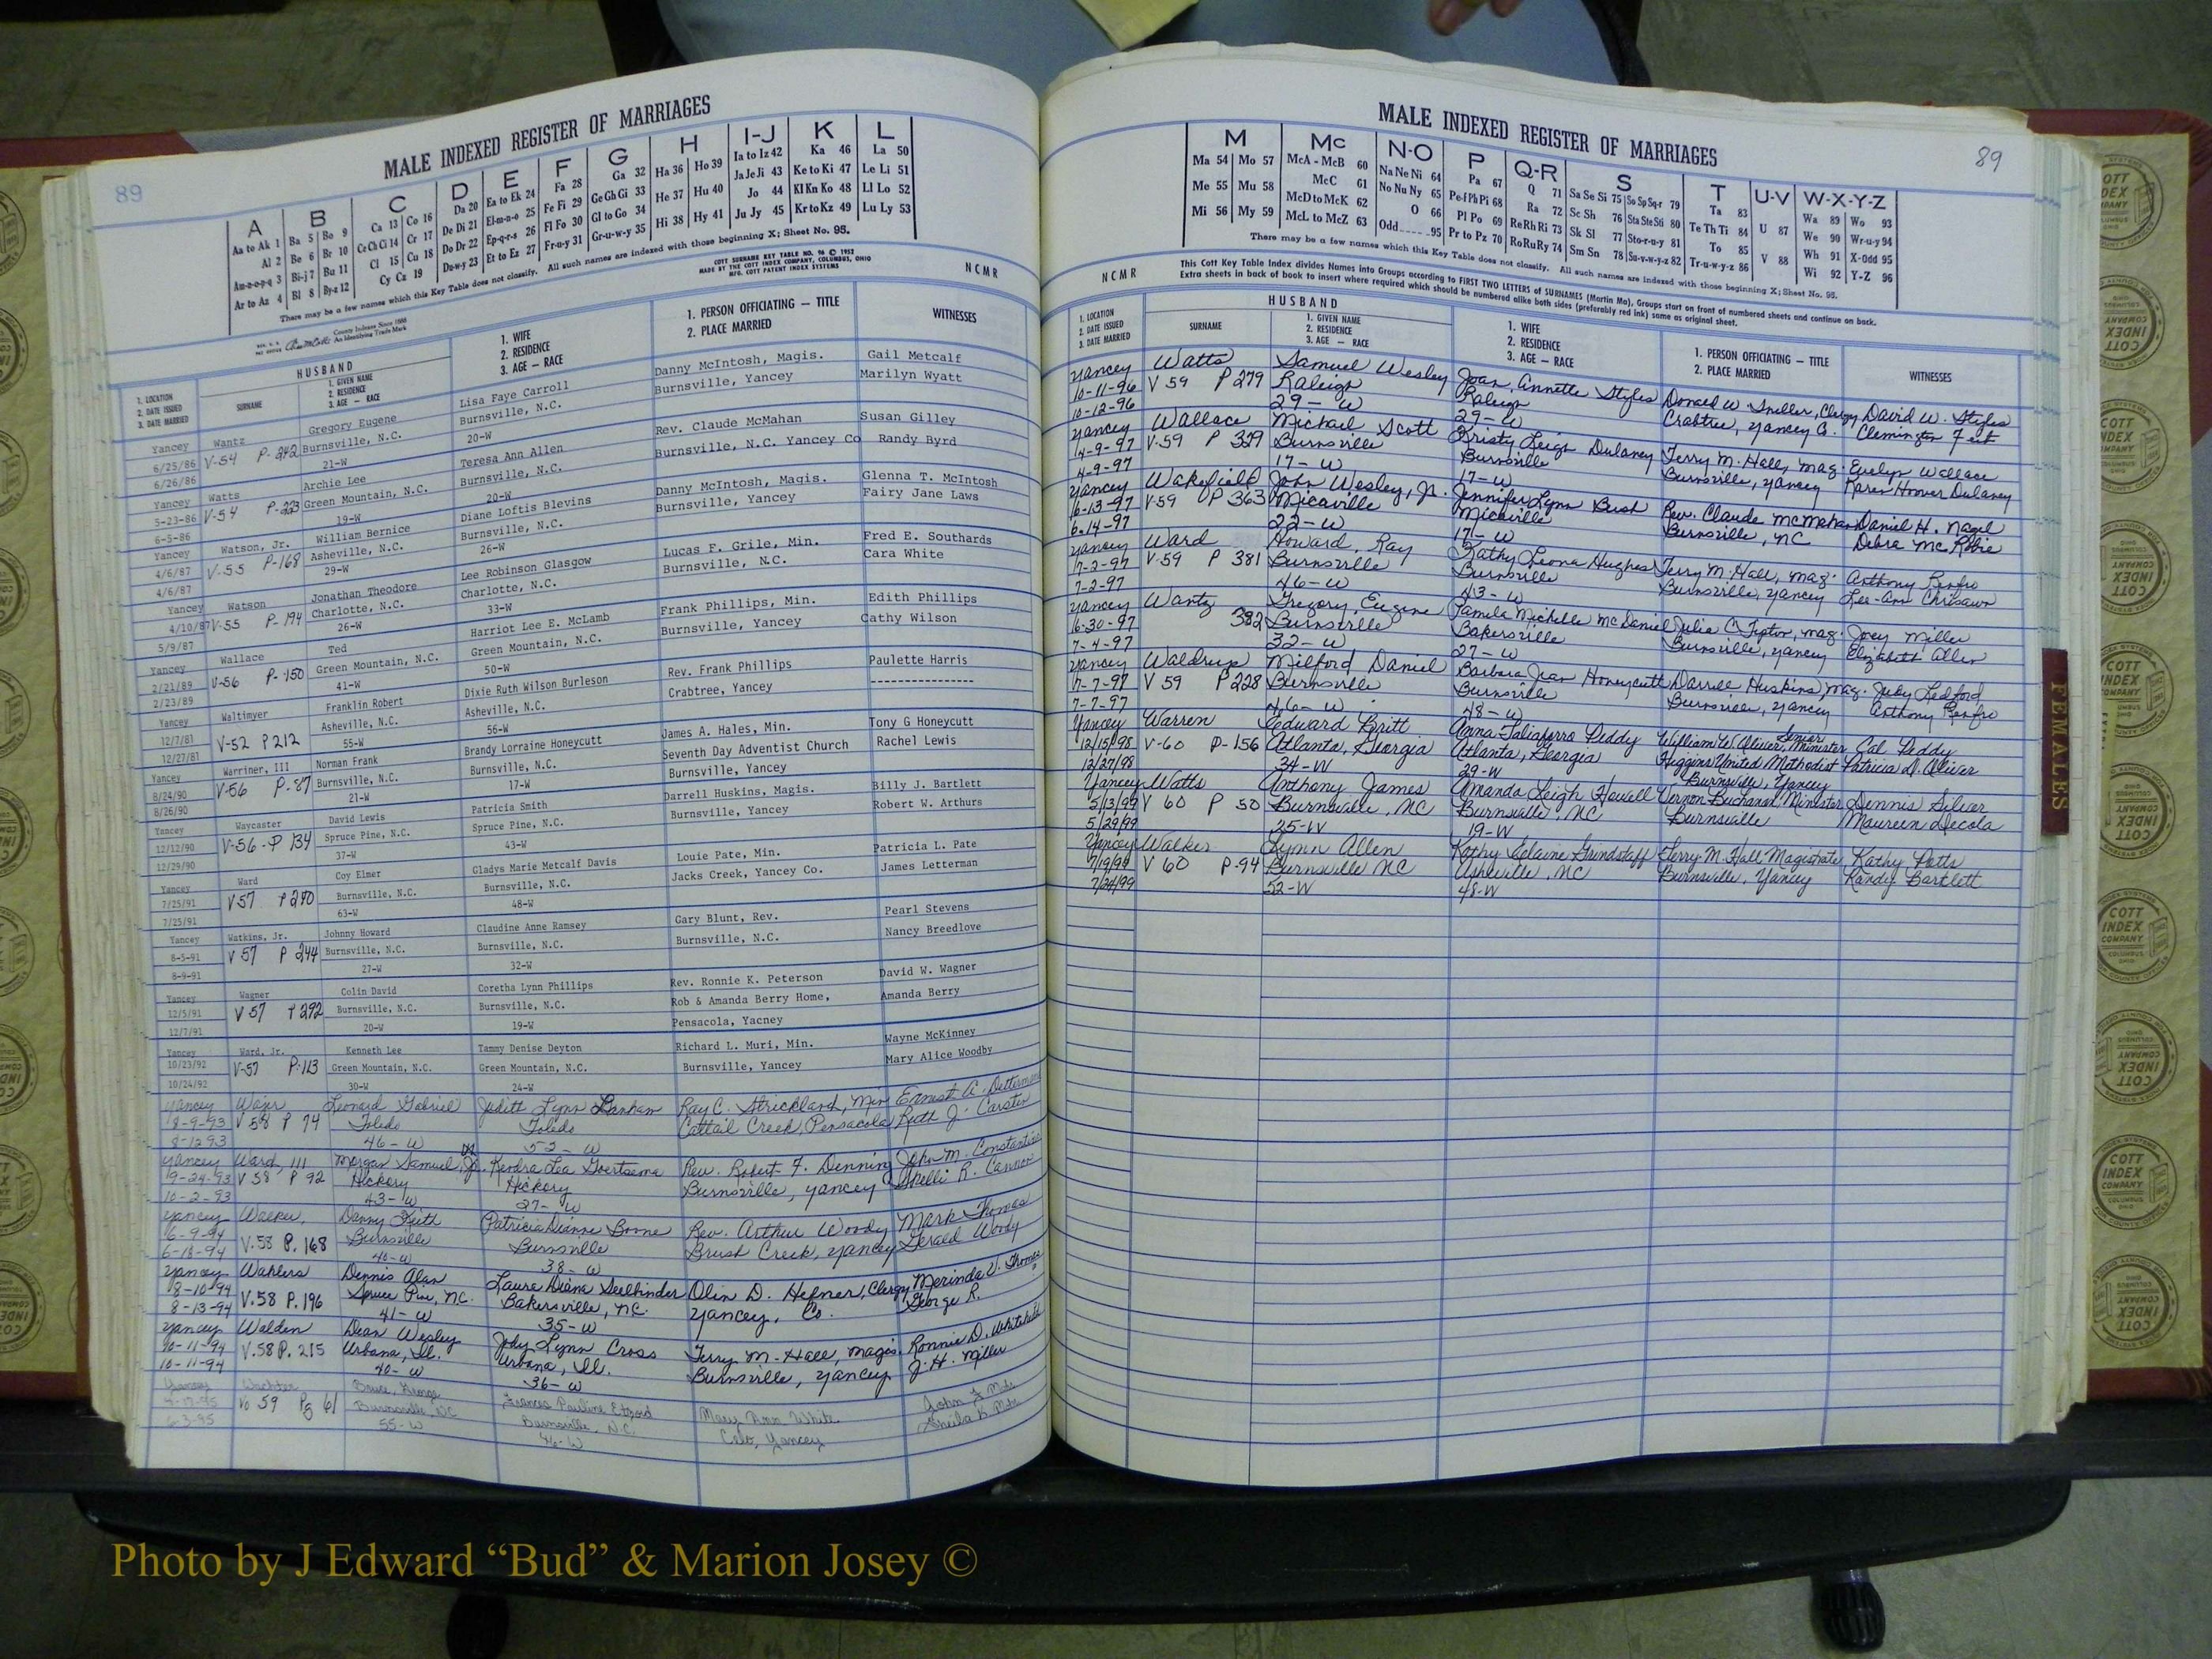 89
MALE INDEXED REGISTER OF MARRIAGES
A B C D E F G H I-J K L
Aa to Ak 1 Ba 5 Bo 9 Ca 13 Co 16 Da 20 Ea to Ek 24 Fa 28 Ga 32 Ha 36 Ho 39 Ia to Iz 42 Ka 46 La 50
Al 2 Be 6 Br 10 Ce Ch Ci 14 Cr 17 De Di 21 El-m-n-o 25 Fe Fi 29 Ge Gh Gi 33 He 37 Hu 40 Ja Je Ji 43 Ke to Ki 47 Le Li 51
Am-n-o-p-q 3 Bi-j 7 Bu 11 Cl 15 Cu 18 Do Dr 22 Ep-q-r-s 26 Fl Fo 30 Gl to Go 34 Hi 38 Hy 41 Jo 44 Kl Kn Ko 48 Ll Lo 52
Ar to Az 4 Bl 8 By-z 12 Cy Cz 19 Du-w-y 23 Et to Ez 27 Fr-u-y 31 Gr-u-w-y 35 Ju Jy 45 Kr to Kz 49 Lu Ly 53
There may be a few names which this Key Table does not classify. All such names are indexed with those beginning X; Sheet No. 95.
County Indexes Since 1888
An Identifying Trade Mark
COTT SURNAME KEY TABLE NO. 96 © 1952
MADE BY THE COTT INDEX COMPANY, COLUMBUS, OHIO
MFG. COTT PATENT INDEX SYSTEMS
NCMR
1. LOCATION
2. DATE ISSUED
3. DATE MARRIED
HUSBAND
SURNAME
1. GIVEN NAME
2. RESIDENCE
3. AGE — RACE
1. WIFE
2. RESIDENCE
3. AGE — RACE
1. PERSON OFFICIATING — TITLE
2. PLACE MARRIED
WITNESSES
Yancey Wantz Gregory Eugene Lisa Faye Carroll Danny McIntosh, Magis. Gail Metcalf
6/25/86 V-54 P-242 Burnsville, N.C. Burnsville, N.C. Burnsville, Yancey Marilyn Wyatt
6/26/86 21-W 20-W
Yancey Watts Archie Lee Teresa Ann Allen Rev. Claude McMahan Susan Gilley
5-23-86 V-54 P-223 Green Mountain, N.C. Burnsville, N.C. Burnsville, N.C. Yancey Co Randy Byrd
6-5-86 19-W 20-W
Yancey Watson, Jr. William Bernice Diane Loftis Blevins Danny McIntosh, Magis. Glenna T. McIntosh
4/6/87 V-55 P-168 Asheville, N.C. Burnsville, N.C. Burnsville, Yancey Fairy Jane Laws
4/6/87 29-W 26-W
Yancey Watson Jonathan Theodore Lee Robinson Glasgow Lucas F. Grile, Min. Fred E. Southards
4/10/87 V-55 P-194 Charlotte, N.C. Charlotte, N.C. Burnsville, N.C. Cara White
5/9/87 26-W 33-W
Yancey Wallace Ted Harriot Lee E. McLamb Frank Phillips, Min. Edith Phillips
2/21/89 V-56 P-150 Green Mountain, N.C. Green Mountain, N.C. Burnsville, Yancey Cathy Wilson
2/23/89 41-W 50-W
Yancey Waltimyer Franklin Robert Dixie Ruth Wilson Burleson Rev. Frank Phillips Paulette Harris
12/7/81 V-52 P212 Asheville, N.C. Asheville, N.C. Crabtree, Yancey ---------------
12/27/81 55-W 56-W
Yancey Warriner, III Norman Frank Brandy Lorraine Honeycutt James A. Hales, Min. Tony G Honeycutt
8/24/90 V-56 P-87 Burnsville, N.C. Burnsville, N.C. Seventh Day Adventist Church Rachel Lewis
8/26/90 21-W 17-W Burnsville, Yancey
Yancey Waycaster David Lewis Patricia Smith Darrell Huskins, Magis. Billy J. Bartlett
12/12/90 V-56-P 134 Spruce Pine, N.C. Spruce Pine, N.C. Burnsville, Yancey Robert W. Arthurs
12/29/90 37-W 43-W
Yancey Ward Coy Elmer Gladys Marie Metcalf Davis Louie Pate, Min. Patricia L. Pate
7/25/91 V57 P240 Burnsville, N.C. Burnsville, N.C. Jacks Creek, Yancey Co. James Letterman
7/25/91 63-W 48-W
Yancey Watkins, Jr. Johnny Howard Claudine Anne Ramsey Gary Blunt, Rev. Pearl Stevens
8-5-91 V57 P 244 Burnsville, N.C. Burnsville, N.C. Burnsville, N.C. Nancy Breedlove
8-9-91 27-W 32-W
Yancey Wagner Colin David Coretha Lynn Phillips Rev. Ronnie K. Peterson David W. Wagner
12/5/91 V57 P292 Burnsville, N.C. Burnsville, N.C. Rob & Amanda Berry Home, Amanda Berry
12/7/91 20-W 19-W Pensacola, Yacney
Yancey Ward, Jr. Kenneth Lee Tammy Denise Deyton Richard L. Muri, Min. Wayne McKinney
10/23/92 V-57 P-113 Green Mountain, N.C. Green Mountain, N.C. Burnsville, Yancey Mary Alice Woodby
10/24/92 30-W 24-W
Yancey Leonard Gabriel Judith Lynn Ray C. Strickland, Min Ernest A.
8-9-93 V58 P 74 Toledo Toledo Cattail Creek, Pensacola Ruth J.
8-12 93 46-W 52-W
Yancey Ward, III Morgan Samuel, Jr. Kendra Lea Goertsema Rev. Robert F. Denning John M.
9-24-93 V58 P 92 Hickory Hickory Burnsville, Yancey Shelli R. Cannon
10-2-93 43-W 27-W
Yancey Walker, Danny Keith Patricia Dianne Boone Rev. Arthur Woody Mark Thomas
6-9-94 V.58 P.168 Burnsville Burnsville Brush Creek, Yancey Gerald Woody
6-18-94 40-W 38-W
Yancey Wahlers Dennis Alan Laura Diana Olin D. Hefner, Clergy Merinda V.
8-10-94 V.58 P.196 Spruce Pine, NC. Bakersville, NC. Yancey, Co. George R.
8-13-94 41-W 35-W
Yancey Walden Dean Wesley Jody Lynn Cross Terry M. Hall, Magis. Ronnie D.
10-11-94 V.58 P.215 Urbana, Il. Urbana, Il. Burnsville, Yancey J.H. Miller
10-11-94 40-W 36-W
Yancey Bruce, George Frances Pauline Mary Ann White John
Vo 59 Pg 61 Burnsville, NC Burnsville, N.C. Celo, Yancey Sheila
6-3-95 55-W 46-W
89
MALE INDEXED REGISTER OF MARRIAGES
M Mc N-O P Q-R S T U-V W-X-Y-Z
Ma 54 Mo 57 McA - McB 60 Na Ne Ni 64 Pa 67 Q 71 Sa Se Si 75 So Sp Sq-r 79 Ta 83 U 87 Wa 89 Wo 93
Me 55 Mu 58 McC 61 No Nu Ny 65 Pe-f Ph Pi 68 Ra 72 Sc Sh 76 Sta Ste Sti 80 Te Th Ti 84 V 88 We 90 Wr-u-y 94
Mi 56 My 59 McD to McK 62 O 66 Pl Po 69 Re Rh Ri 73 Sk Sl 77 Sto-r-u-y 81 To 85 Wh 91 X-Odd 95
McL to McZ 63 Odd 95 Pr to Pz 70 Ro Ru Ry 74 Sm Sn 78 Su-v-w-y-z 82 Tr-u-w-y-z 86 Wi 92 Y-Z 96
There may be a few names which this Key Table does not classify. All such names are indexed with those beginning X; Sheet No. 95.
This Cott Key Table Index divides Names into Groups according to FIRST TWO LETTERS of SURNAMES (Martin Ma), Groups start on front of numbered sheets and continue on back.
Extra sheets in back of book to insert where required which should be numbered alike both sides (preferably red ink) same as original sheet.
NCMR
1. LOCATION
2. DATE ISSUED
3. DATE MARRIED
HUSBAND
SURNAME
1. GIVEN NAME
2. RESIDENCE
3. AGE — RACE
1. WIFE
2. RESIDENCE
3. AGE — RACE
1. PERSON OFFICIATING — TITLE
2. PLACE MARRIED
WITNESSES
Yancey Watts Samuel Wesley Joan Annette Styles Donald W. Clergy David W. Styles
10-11-96 V 59 P 279 Raleigh Raleigh Crabtree, Yancey Co.
10-12-96 29-W 29-W
Yancey Wallace Michael Scott Kristy Leigh Dulaney Terry M. Hall, Mag. Evelyn Wallace
4-9-97 V-59 P 329 Burnsville Burnsville Burnsville, Yancey Karen Hoover Dulaney
4-9-97 17-W 17-W
Yancey Wakefield John Wesley, Jr. Jennifer Lynn Bush Rev. Claude McMahan Daniel H. Nagel
6-13-97 V-59 P 363 Micaville Micaville Burnsville, NC Debra
6-14-97 22-W 17-W
Yancey Ward Howard Ray Kathy Leona Hughes Terry M. Hall, Mag. Anthony Renfro
7-2-97 V-59 P 381 Burnsville Burnsville Burnsville, Yancey Lee-Ann Chrisawn
7-2-97 46-W 43-W
Yancey Wantz Gregory Eugene Pamela Michelle McDaniel Julia C Tipton, Mag. Joey Miller
6-30-97 382 Burnsville Bakersville Burnsville, Yancey Elizabeth Allen
7-4-97 32-W 27-W
Yancey Waldrup Milford Daniel Barbara Jean Honeycutt Darrell Huskins, Mag. Judy Ledford
7-7-97 V 59 P 228 Burnsville Burnsville Burnsville, Yancey Anthony Renfro
7-7-97 46-W 48-W
Yancey Warren Edward Britt Anna Taliaferro Peddy William W. Oliver, Senior Minister Cal Peddy
12/15/98 V-60 P-156 Atlanta, Georgia Atlanta, Georgia Higgins United Methodist Patricia D. Oliver
12/27/98 34-W 29-W Burnsville, Yancey
Yancey Watts Anthony James Amanda Leigh Howell Vernon Buchanan, Minister Dennis Silver
5/13/99 V 60 P 50 Burnsville, NC Burnsville, NC Burnsville Maureen Decola
5/29/99 25-W 19-W
Yancey Walker Lynn Allen Kathy Elaine Grindstaff Terry M. Hall Magistrate Kathy Potts
7/19/99 V 60 P-94 Burnsville NC Asheville, NC Burnsville, Yancey Randy Bartlett
7/24/99 52-W 48-W
FEMALES
COTT INDEX COMPANY COLUMBUS OHIO
Photo by J Edward “Bud” & Marion Josey ©